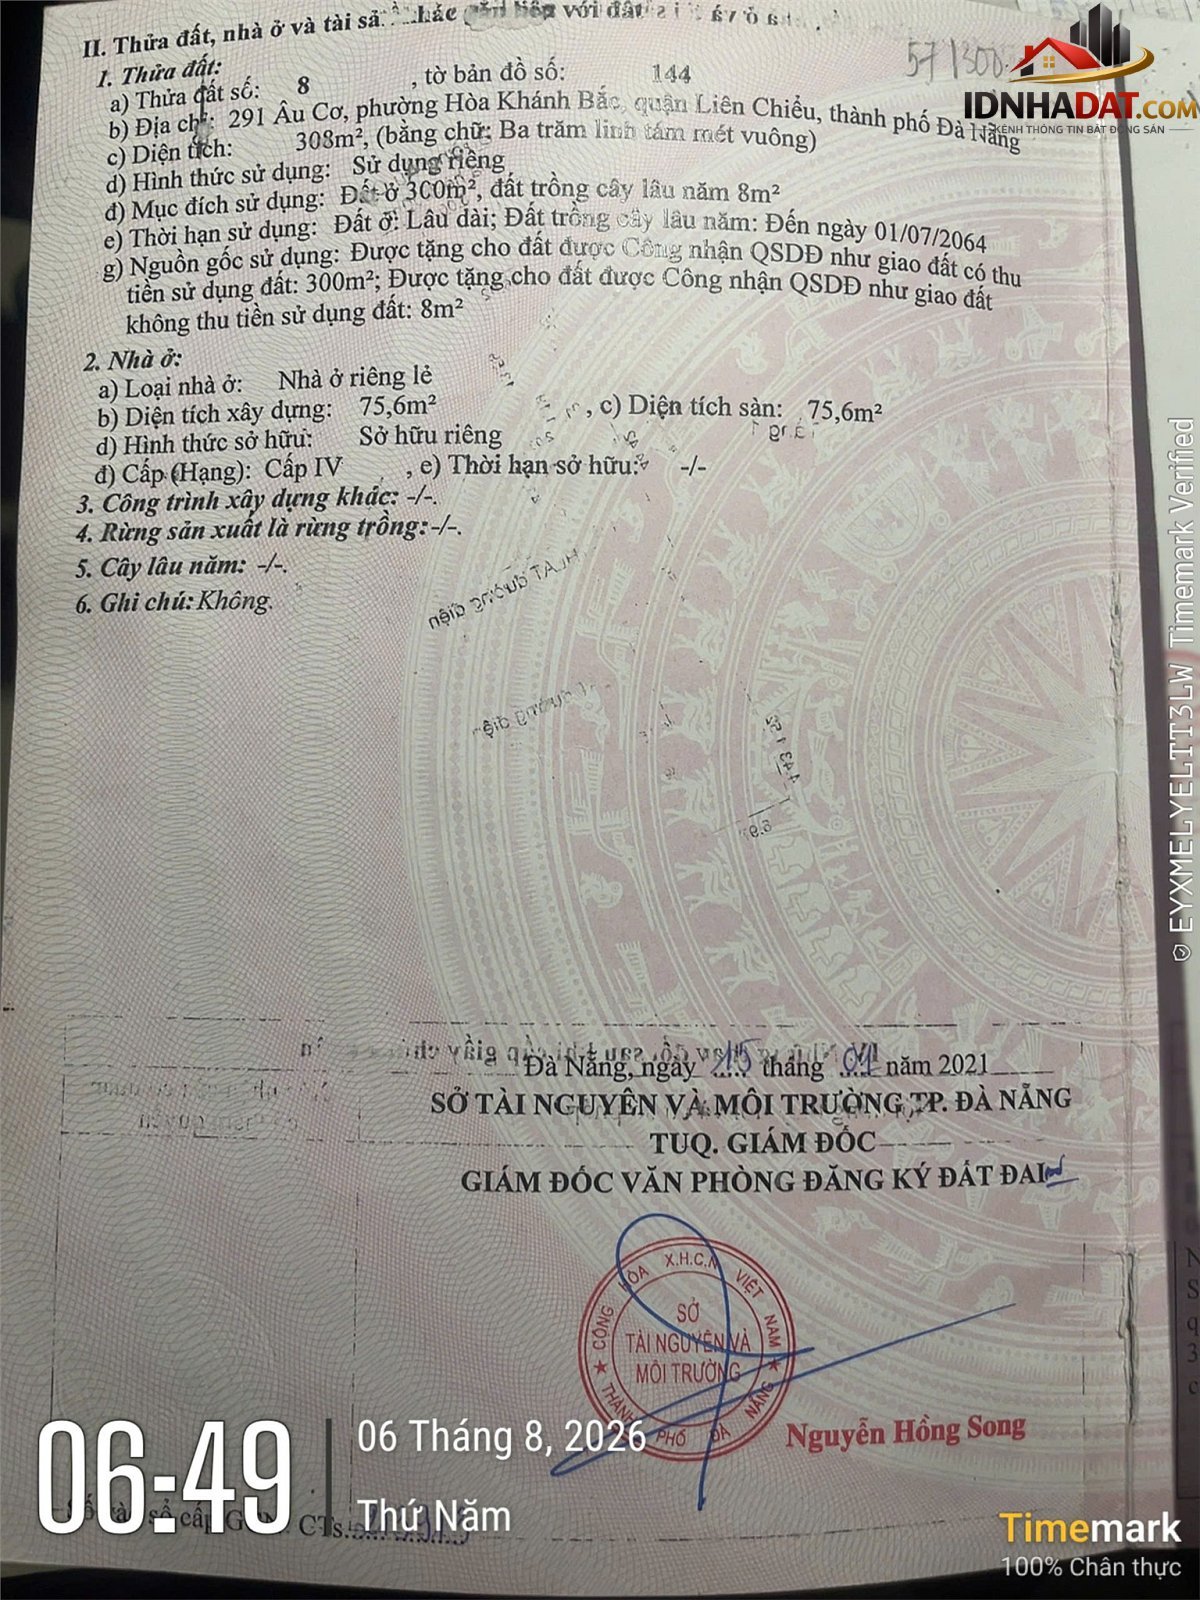 II. Thửa đất, nhà ở và tài sản khác gắn liền với đất
571300
IDNHADAT.COM
KÊNH THÔNG TIN BẤT ĐỘNG SẢN
1. Thửa đất:
a) Thửa đất số: 8 , tờ bản đồ số: 144
b) Địa chỉ: 291 Âu Cơ, phường Hòa Khánh Bắc, quận Liên Chiểu, thành phố Đà Nẵng
c) Diện tích: 308m², (bằng chữ: Ba trăm linh tám mét vuông)
d) Hình thức sử dụng: Sử dụng riêng
đ) Mục đích sử dụng: Đất ở 300m², đất trồng cây lâu năm 8m²
e) Thời hạn sử dụng: Đất ở: Lâu dài; Đất trồng cây lâu năm: Đến ngày 01/07/2064
g) Nguồn gốc sử dụng: Được tặng cho đất được Công nhận QSDĐ như giao đất có thu
tiền sử dụng đất: 300m²; Được tặng cho đất được Công nhận QSDĐ như giao đất
không thu tiền sử dụng đất: 8m²
2. Nhà ở:
a) Loại nhà ở: Nhà ở riêng lẻ
b) Diện tích xây dựng: 75,6m² , c) Diện tích sàn: 75,6m²
d) Hình thức sở hữu: Sở hữu riêng
đ) Cấp (Hạng): Cấp IV , e) Thời hạn sở hữu: -/-
3. Công trình xây dựng khác: -/-.
4. Rừng sản xuất là rừng trồng: -/-.
5. Cây lâu năm: -/-.
6. Ghi chú: Không.
Đà Nẵng, ngày 15 tháng 01 năm 2021
SỞ TÀI NGUYÊN VÀ MÔI TRƯỜNG TP. ĐÀ NẴNG
TUQ. GIÁM ĐỐC
GIÁM ĐỐC VĂN PHÒNG ĐĂNG KÝ ĐẤT ĐAI
CỘNG HÒA X.H.C.N VIỆT NAM
SỞ
TÀI NGUYÊN VÀ
MÔI TRƯỜNG
THÀNH PHỐ ĐÀ NẴNG
Nguyễn Hồng Song
Số vào sổ cấp GCN: CTs
06:49
06 Tháng 8, 2026
Thứ Năm
Timemark
100% Chân thực
EYXMELYELIT3LW Timemark Verified